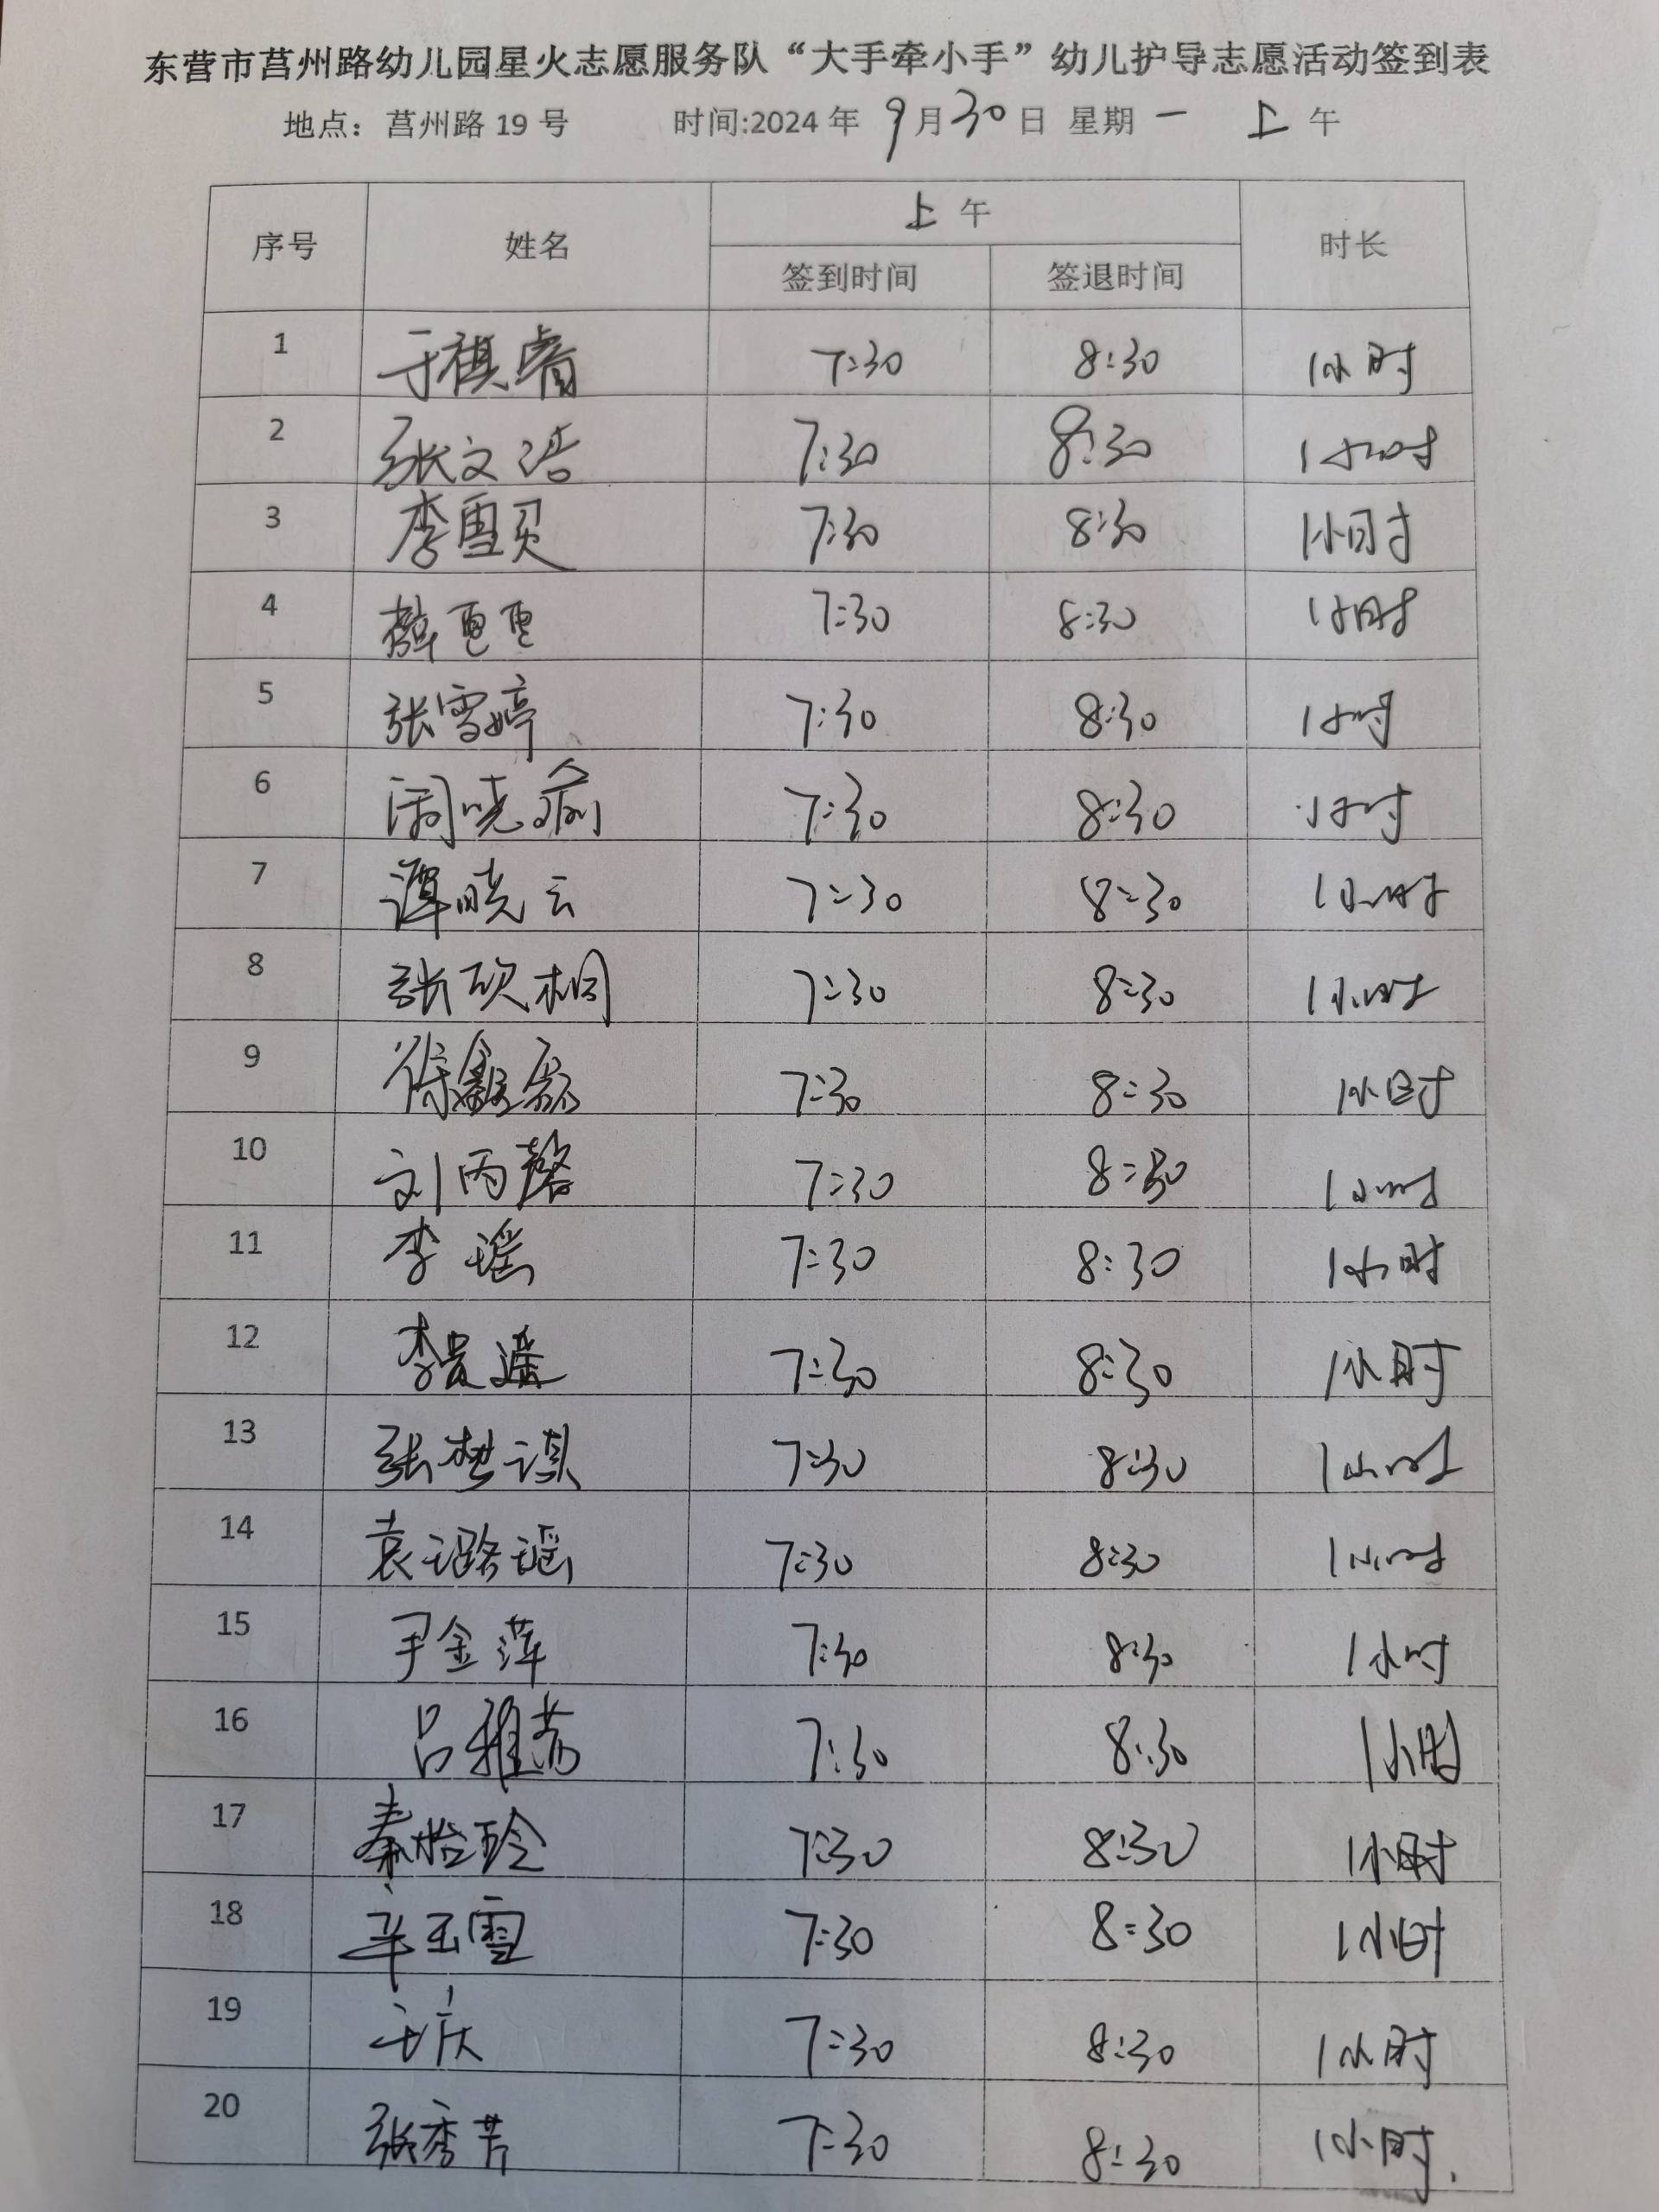 东营市莒州路幼儿园星火志愿服务队“大手牵小手”幼儿护导志愿活动签到表
地点：莒州路 19 号 时间:2024 年 9 月 30 日 星期 一 上 午
序号 姓名 上 午 时长
签到时间 签退时间
1 于祺睿 7:30 8:30 1小时
2 张文浩 7:30 8:30 1小时
3 李雪 7:30 8:30 1小时
4 薛 7:30 8:30 1小时
5 张雪婷 7:30 8:30 1小时
6 晓 7:30 8:30 1小时
7 谭晓云 7:30 8:30 1小时
8 张砚桐 7:30 8:30 1小时
9 徐鑫磊 7:30 8:30 1小时
10 刘丙馨 7:30 8:30 1小时
11 李瑶 7:30 8:30 1小时
12 李 7:30 8:30 1小时
13 张楚琪 7:30 8:30 1小时
14 袁璐瑶 7:30 8:30 1小时
15 尹金萍 7:30 8:30 1小时
16 吕雅芳 7:30 8:30 1小时
17 秦怡玲 7:30 8:30 1小时
18 辛玉雪 7:30 8:30 1小时
19 7:30 8:30 1小时
20 张秀芳 7:30 8:30 1小时.